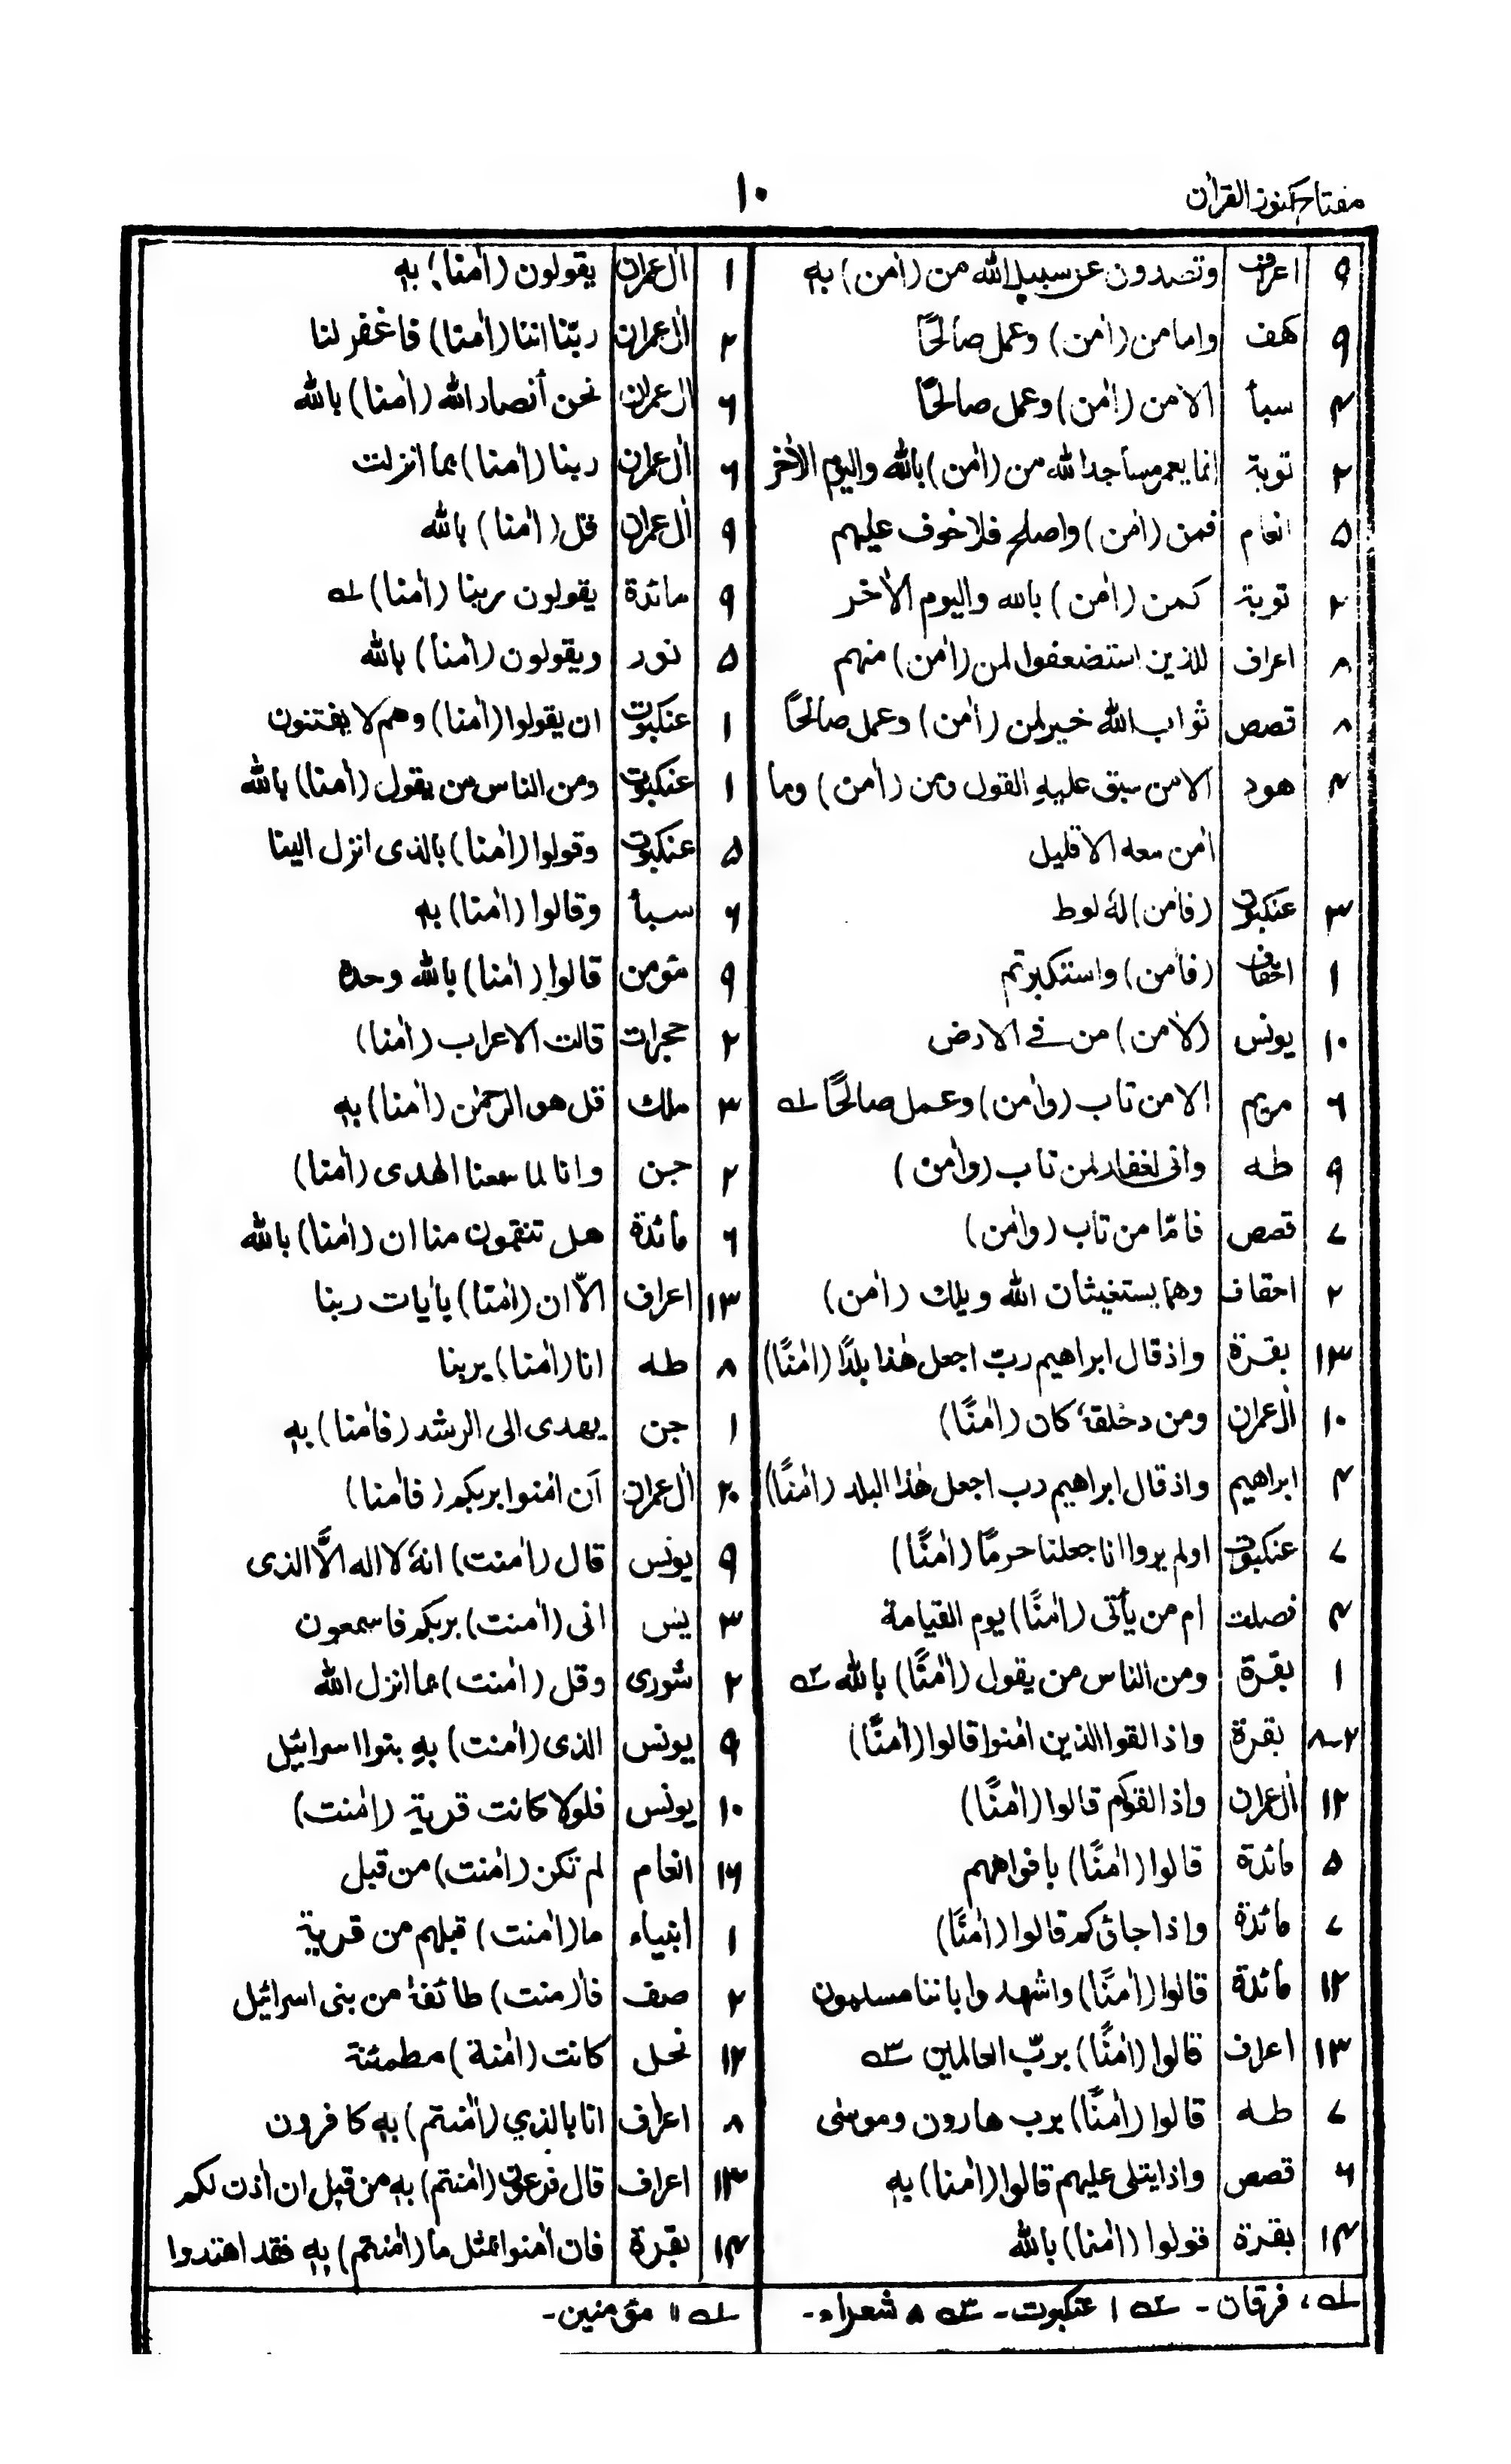 مفتاح كنوز القرآن
۱۰
۹ اعراف وتصدون عن سبيل الله من (اٰمن) به
۹ كهف واما من (اٰمن) وعمل صالحًا
۴ سبأ الا من (اٰمن) وعمل صالحًا
۲ توبة انما يعمر مساجد الله من (اٰمن) بالله واليوم الاٰخر
۵ انعام فمن (اٰمن) واصلح فلا خوف عليهم
۲ توبة كمن (اٰمن) بالله واليوم الاٰخر
۸ اعراف للذين استضعفوا لمن (اٰمن) منهم
۸ قصص ثواب الله خير لمن (اٰمن) وعمل صالحًا
۴ هود الا من سبق عليه القول ومن (اٰمن) وما
اٰمن معه الا قليل
۳ عنكبوت (فاٰمن) لهٗ لوط
۱ احقاف (فاٰمن) واستكبرتم
۱۰ يونس (لاٰمن) من فى الارض
۶ مريم الا من تاب (واٰمن) وعمل صالحًا ؎۱
۹ طه وانى لغفار لمن تاب (واٰمن)
۷ قصص فامّا من تاب (واٰمن)
۲ احقاف وهما يستغيثان الله ويلك (اٰمن)
۱۳ بقرة واذ قال ابراهيم ربّ اجعل هٰذا بلدًا (اٰمنًا)
۱۰ اٰل عمران ومن دخلهٗ كان (اٰمنًا)
۴ ابراهيم واذ قال ابراهيم رب اجعل هٰذا البلد (اٰمنًا)
۷ عنكبوت اولم يروا انا جعلنا حرمًا (اٰمنًا)
۴ فصلت ام من يأتى (اٰمنًا) يوم القيامة
۱ بقرة ومن الناس من يقول (اٰمنًا) بالله ؎۲
۲-۸ بقرة واذا لقوا الذين اٰمنوا قالوا (اٰمنًا)
۱۲ اٰل عمران واذا لقوكم قالوا (اٰمنًا)
۵ مائدة قالوا (اٰمنًا) بافواههم
۷ مائدة واذا جائوكم قالوا (اٰمنًا)
۱۲ مائدة قالوا (اٰمنًا) واشهدوا باننا مسلمون
۱۳ اعراف قالوا (اٰمنًا) بربّ العالمين ؎۳
۷ طه قالوا (اٰمنًا) برب هارون وموسٰى
۶ قصص واذا يتلى عليهم قالوا (اٰمنا) به
۱۴ بقرة قولوا (اٰمنا) بالله
؎۱ ، فرقان - ؎۲ ۱ عنكبوت - ؎۳ ۸ شعراء -
۱ اٰل عمران يقولون (اٰمنا) به
۲ اٰل عمران ربّنا اننا (اٰمنا) فاغفر لنا
۶ اٰل عمران نحن أنصار الله (اٰمنا) بالله
۶ اٰل عمران ربنا (اٰمنا) بما انزلت
۹ اٰل عمران قل (اٰمنا) بالله
۹ مائدة يقولون ربنا (اٰمنا) ؎۱
۵ نور ويقولون (اٰمنا) بالله
۱ عنكبوت ان يقولوا (اٰمنا) وهم لا يفتنون
۱ عنكبوت ومن الناس من يقول (اٰمنا) بالله
۵ عنكبوت وقولوا (اٰمنا) بالذى انزل الينا
۶ سبأ وقالوا (اٰمنا) به
۹ مؤمن قالوا (اٰمنا) بالله وحدهٗ
۲ حجرات قالت الاعراب (اٰمنا)
۳ ملك قل هو الرحمٰن (اٰمنا) به
۲ جن وانا لما سمعنا الهدى (اٰمنا)
۶ مائدة هل تنقمون منا ان (اٰمنا) بالله
۱۳ اعراف الّا ان (اٰمنا) باٰيات ربنا
۸ طه انا (اٰمنا) بربنا
۱ جن يهدى الى الرشد (فاٰمنا) به
۲۰ اٰل عمران اَن اٰمنوا بربكم (فاٰمنا)
۹ يونس قال (اٰمنت) انهٗ لا اله الَّا الذى
۳ يٰس انى (اٰمنت) بربكم فاسمعون
۲ شورى وقل (اٰمنت) بما انزل الله
۹ يونس الذى (اٰمنت) به بنوا اسرائيل
۱۰ يونس فلولا كانت قرية (اٰمنت)
۱۶ انعام لم تكن (اٰمنت) من قبل
۱ انبياء ما (اٰمنت) قبلهم من قرية
۲ صف فا (اٰمنت) طائفة من بنى اسرائيل
۱۲ نحل كانت (اٰمنة) مطمئنة
۸ اعراف انا بالذي (اٰمنتم) به كافرون
۱۳ اعراف قال فرعون (اٰمنتم) به من قبل ان اٰذن لكم
۱۴ بقرة فان اٰمنوا بمثل ما (اٰمنتم) به فقد اهتدوا
؎۱ ۱۱ مؤمنين -